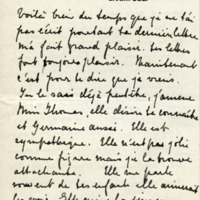 Voilà bien du temps que je ne t'ai
pas écrit pourtant ta dernière lettre
m'a fait grand plaisir. Tes lettres
font toujours plaisir. Maintenant
c'est pour te dire que je viens.
Tu le sais déjà peutêtre, j'amène
Miss Thomas, elle désire te connaître
et Germaine aussi. Elle est
sympathique. Elle n'est pas jolie
comme figure mais je la trouve
attachante. Elle me parle
souvent de tes enfants elle aimerait
les voir.